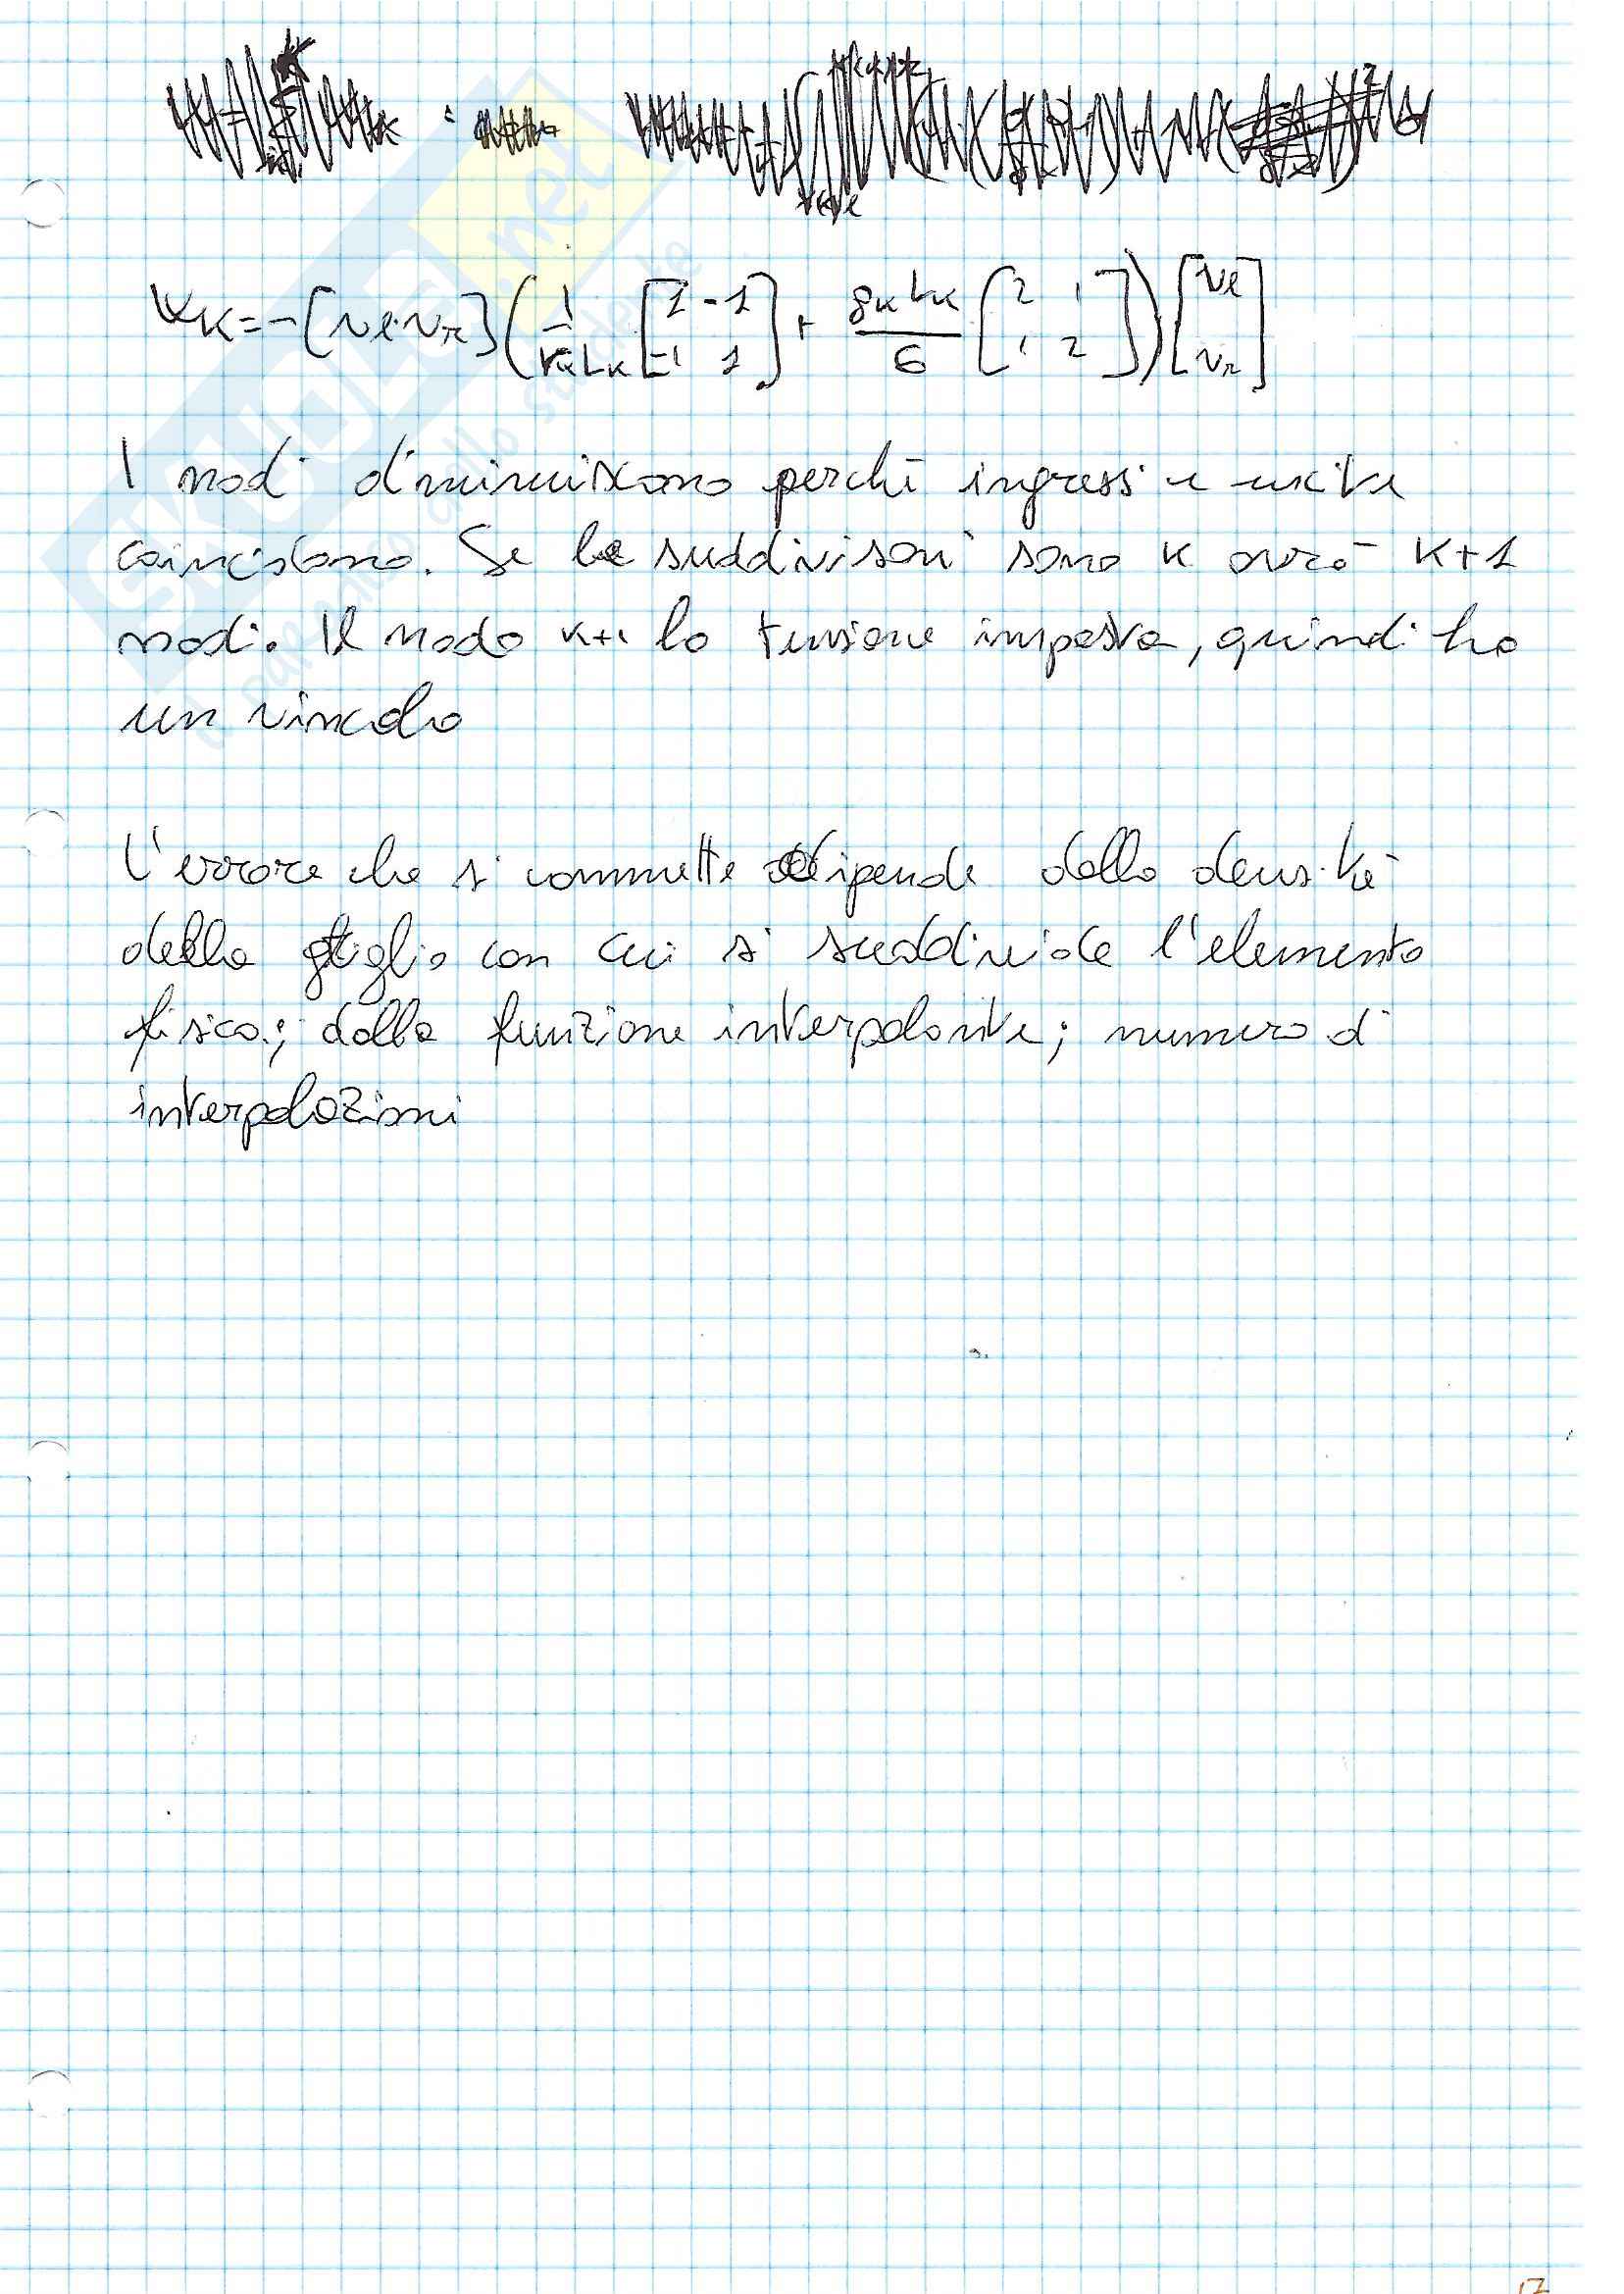 Wk = - [vl vr] ( 1/(rk Lk) [1 -1; -1 1] + (gk Lk)/6 [2 1; 1 2] ) [vl; vr]
I nodi diminuiscono perchè ingressi e uscite
coincidono. Se le suddivisoni sono K avrò K+1
nodi. Il nodo K+1 ha tensione imposta, quindi ho
un vincolo
L'errore che si commette dipende dalla densità
della griglia con cui si suddivide l'elemento
fisico; dalla funzione interpolante; numero di
interpolazioni
SKUOLA.net
17